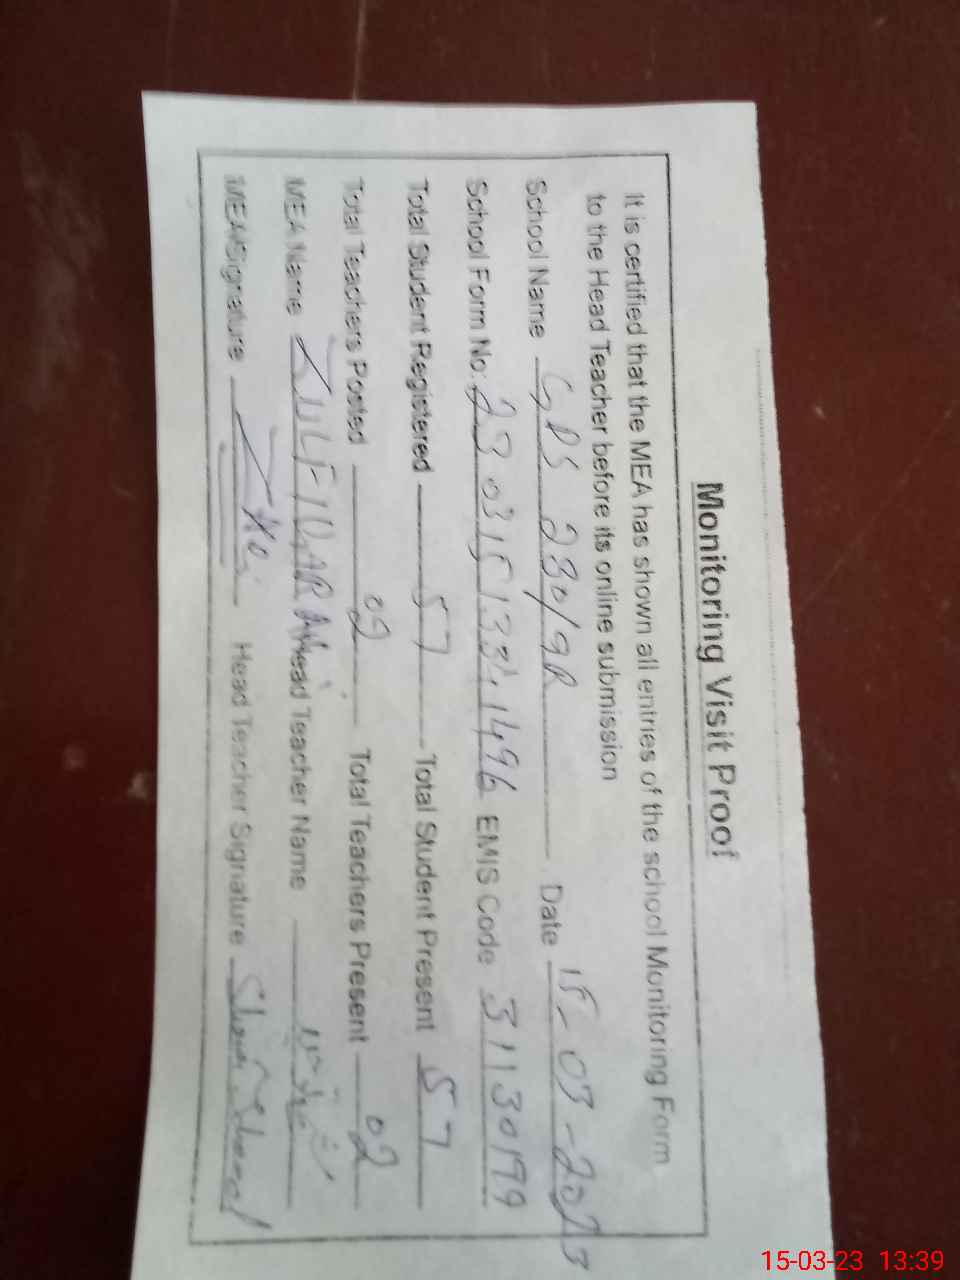 Monitoring Visit Proof
It is certified that the MEA has shown all entries of the school Monitoring Form
to the Head Teacher before its online submission
School Name GPS 230/9R Date 15-03-2023
School Form No: 2303151331496 EMIS Code 31130199
Total Student Registered 57 Total Student Present 57
Total Teachers Posted 02 Total Teachers Present 02
MEA Name ZULFIQAR Head Teacher Name
MEA Signature Head Teacher Signature
15-03-23 13:39